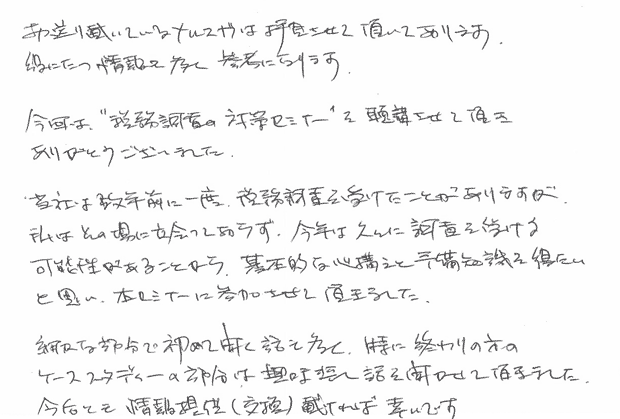 お送り戴いているメルマガは拝見させて頂いております。
役にたつ情報も多く参考になります。
今回は、"税務調査の対策セミナー"を聴講させて頂き
ありがとうございました。
当社は数年前に一度、税務調査を受けたことがありますが、
私はその場に立会っておらず、今年は久々に調査を受ける
可能性があることから、基本的な心構えと予備知識を得たい
と思い、本セミナーに参加させて頂きました。
細かな部分で初めて聞く話も多く、特に終わりの方の
ケーススタディーの部分は興味深い話を聞かせて頂きました。
今後とも情報提供(交換)戴ければ幸いです